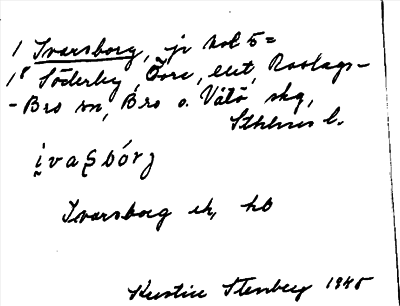 1 Ivarsborg, jr kol 5 =
1⁸ Söderby, Övre, enl, Roslags-
- Bro sn, Bro o. Vätö skg,
Sthlms l.
i̯vaʂbórj
Ivarsborg ek, hb
Kerstin Stenberg 1945